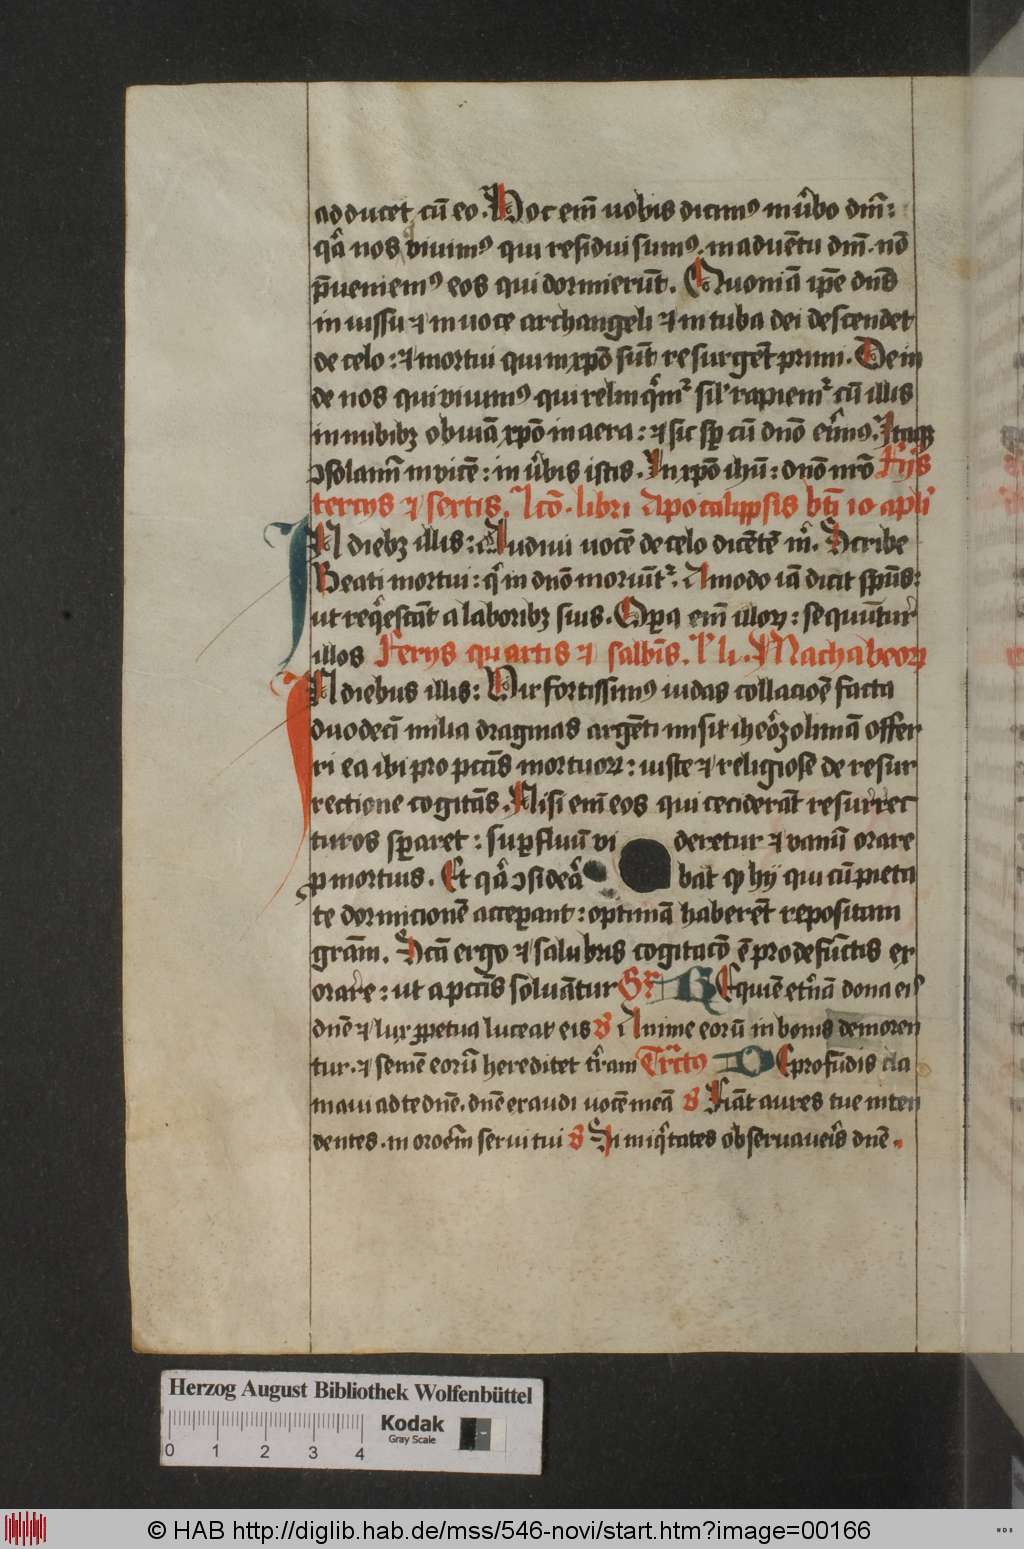 adducet cū eo. Hoc em̄ uobis dicimꝰ in ůbo dm̄i:
qͣ nos viuimꝰ qui residui sumꝰ. in aduētu dn̄i. nō
p̄ueniemꝰ eos qui dormierūt. Quoniā ip̄e dn̄s
in iussu ⁊ in uoce archangeli ⁊ in tuba dei descendet
de celo: ⁊ mortui qui in xp̄o sūt resurgēt primi. Dein
de nos qui viuimꝰ qui relinqͥmꝛ sil' rapiemꝛ cū illis
in nubibꝫ obuiā xp̄o in aera: ⁊ sic sꝑ cū dn̄o erimꝰ. Itaqꝫ
ꝯsolamī inuicē: in ůbis istis. In xp̄o ih̄u: dn̄o nr̄o Feriis
tercijs ⁊ sextis. Lcō. libri Apocalippsis bt̄i io apl̄i
In diebꝫ illis: Audiui uocē de celo dicētē m̊. Scribe
Beati mortui: qͥ in dn̄o moriūtꝛ. Amodo iā dicit sp̄us:
ut reqͥescāt a laboribꝫ suis. Oꝑa em̄ illoꝝ: sequūtur
illos Ferijs quartis ⁊ sabbīs. l' li. Machabeoꝝ
In diebus illis: Vir fortissimꝰ iudas collacioē facta
duodecī milia dragmas argēti misit iheroͦzolimā offer
ri ea ibi pro pcc̄is mortuoꝝ: iuste ⁊ religiose de resur
rectione cogitās. Nisi em̄ eos qui ceciderāt resurrec
turos sꝑaret: suꝑfluū vi deretur ⁊ vanū orare
ꝓ mortuis. Et qͣ ꝯsideͣ bat ꝙ hij qui cū pieta
te dormicionē acceꝑant: optimā haberēt repositam
grām. Scā ergo ⁊ salubris cogitacō ē pro defūctis ex
orare: ut a pcc̄is soluātur Gr̄ Requiē etͥnā dona eis
dn̄e ⁊ lux ꝑpetua luceat eis V Anime eorū in bonis demoren
tur. ⁊ semē eorū hereditet tͥram Tr̄ctꝰ De profūdis cla
maui ad te dn̄e. dn̄e exaudi uocē meā V Fiāt aures tue inten
dentes. in oroēm serui tui V Si iniqͥtates obseruaueris dn̄e.
Herzog August Bibliothek Wolfenbüttel
0 1 2 3 4
Kodak
Gray Scale
© HAB http://diglib.hab.de/mss/546-novi/start.htm?image=00166